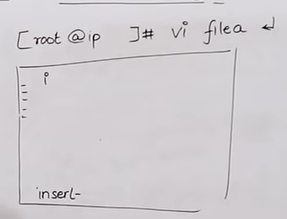 [root @ip ]# vi filea ↵
i
insert-